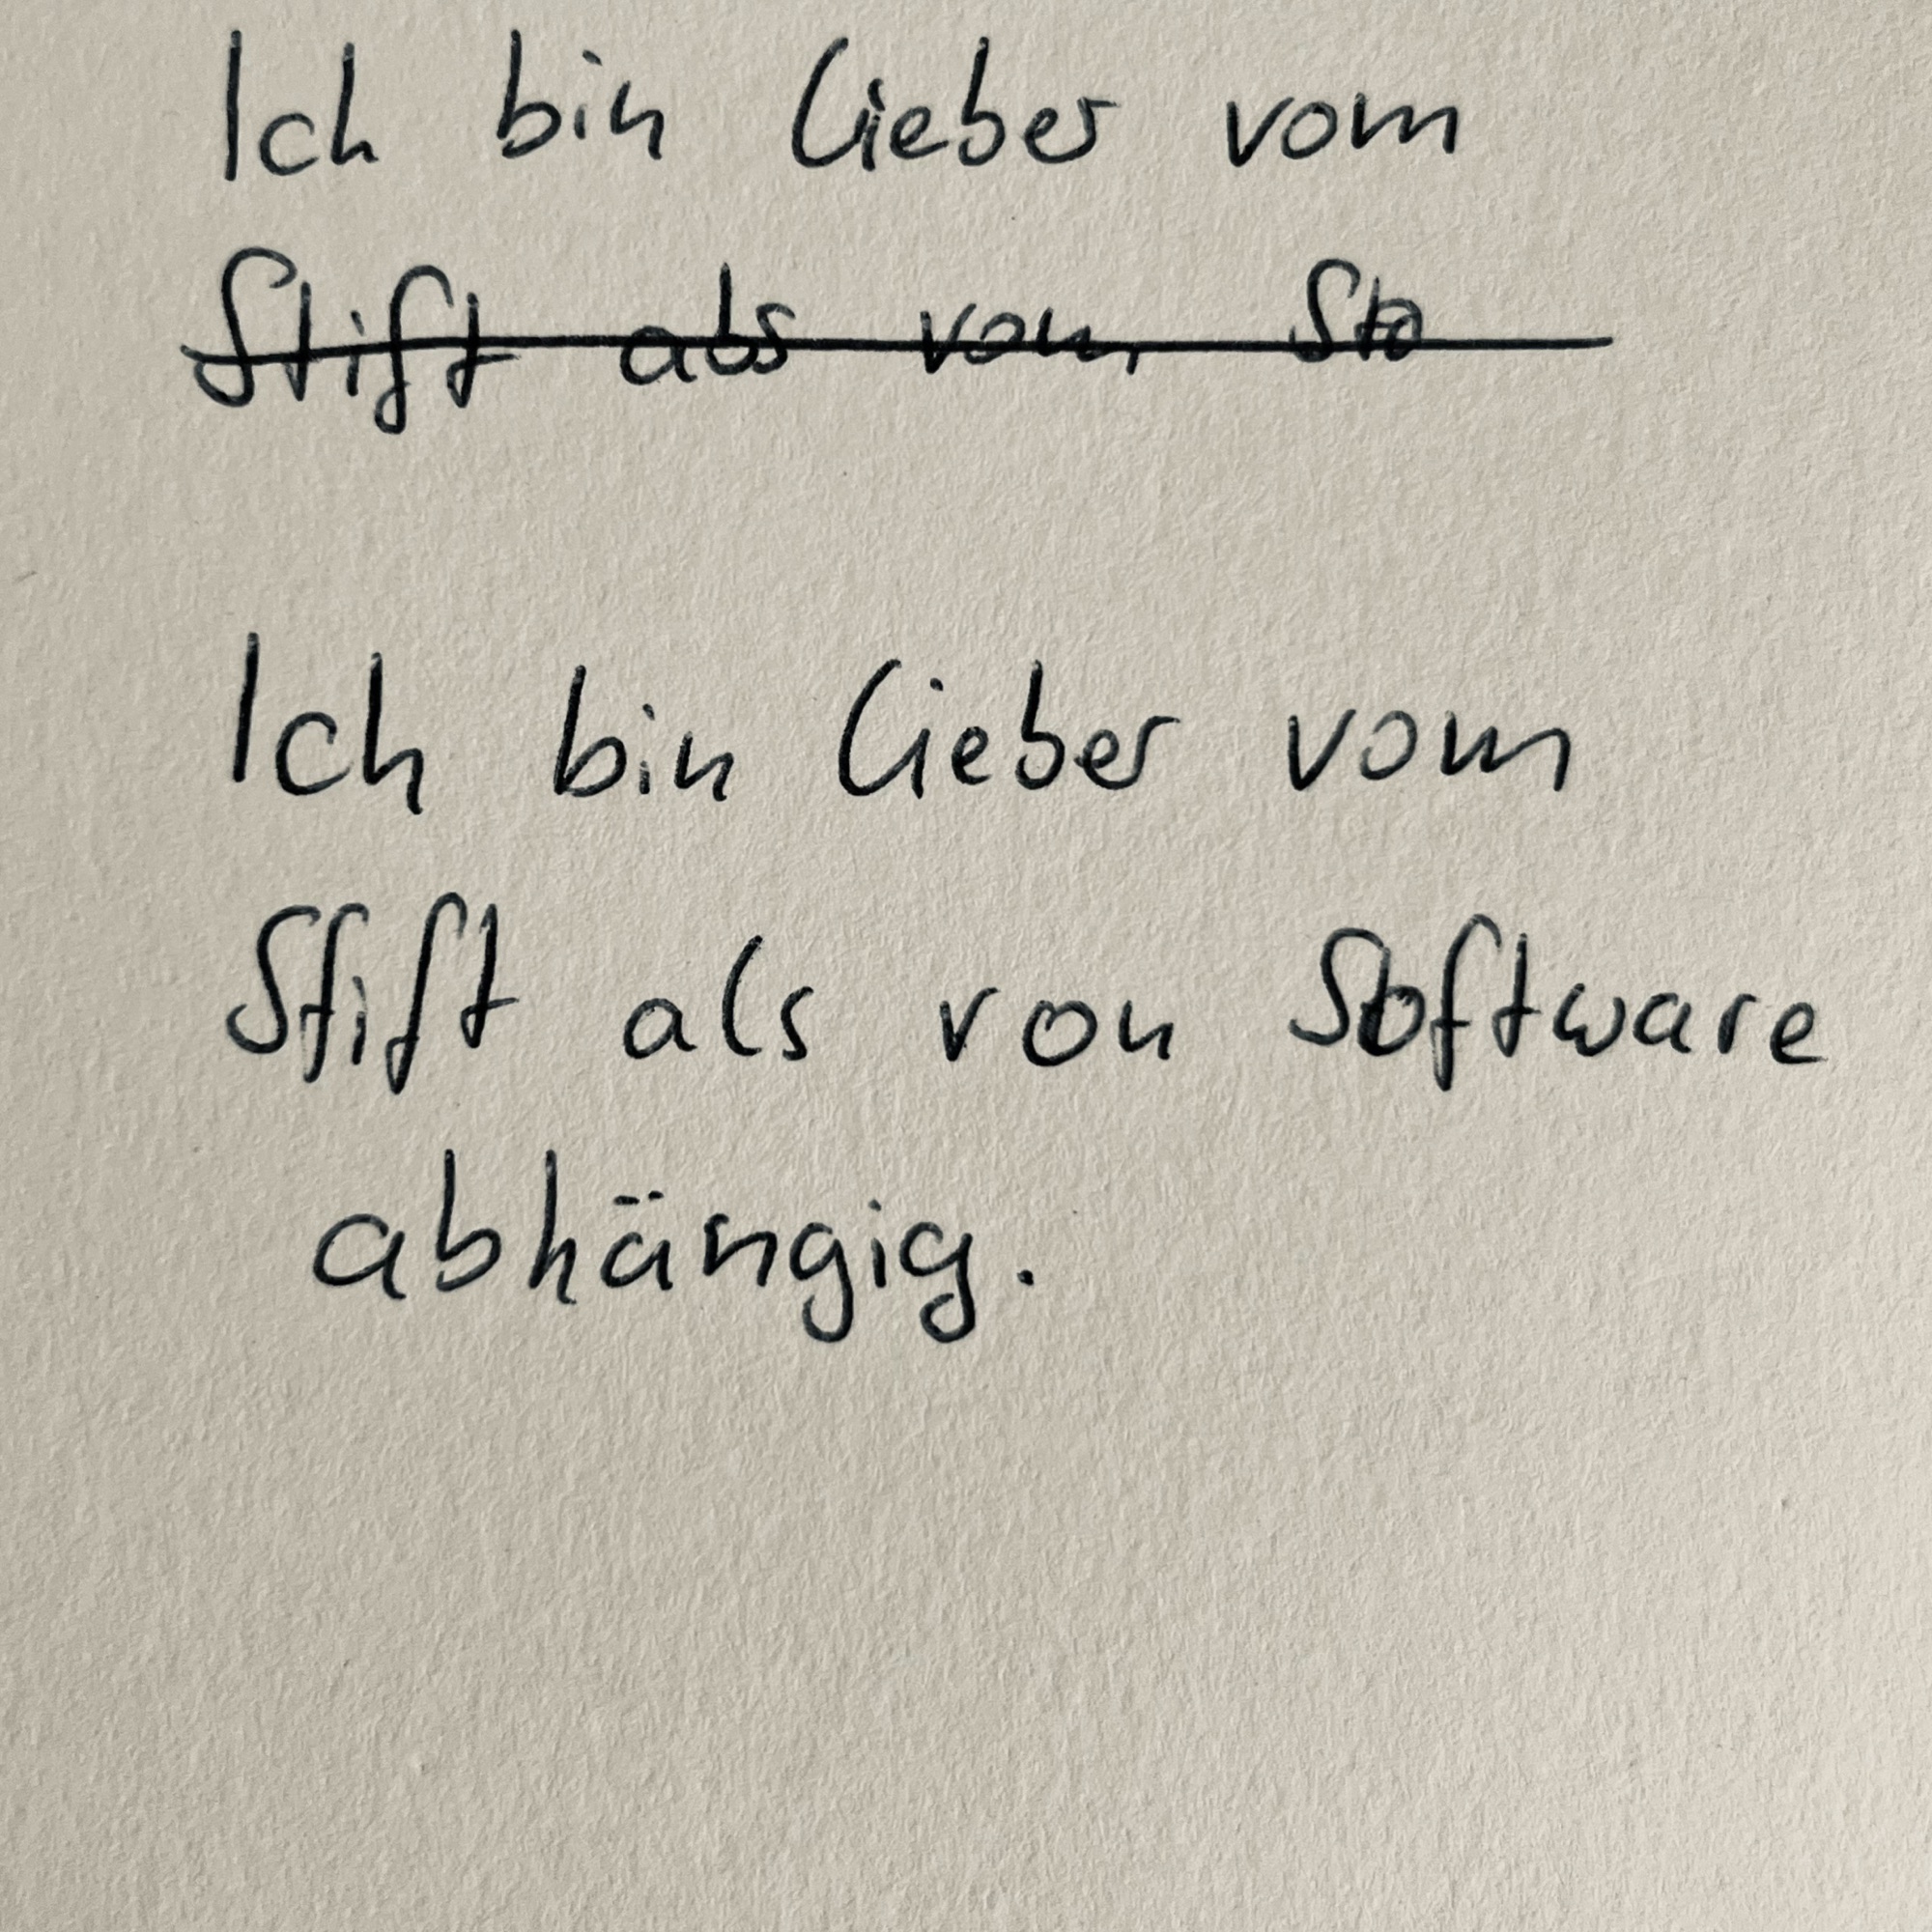 Ich bin lieber vom
Stift als vom Sto
Ich bin lieber vom
Stift als von Software
abhängig.